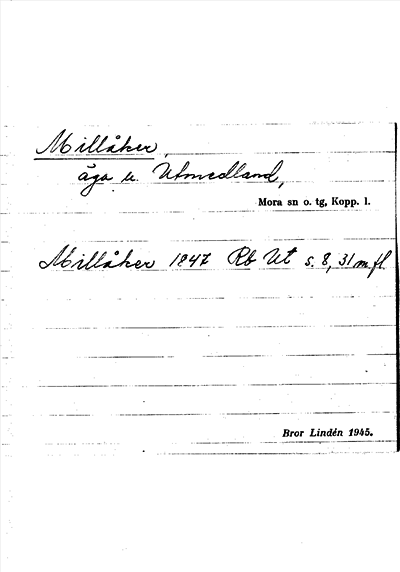 Millåker,
äga u. Utmedland,
Mora sn o. tg, Kopp. l.
Millåker 1847 Rb Ut s. 8, 31 m. fl.
Bror Lindén 1945.